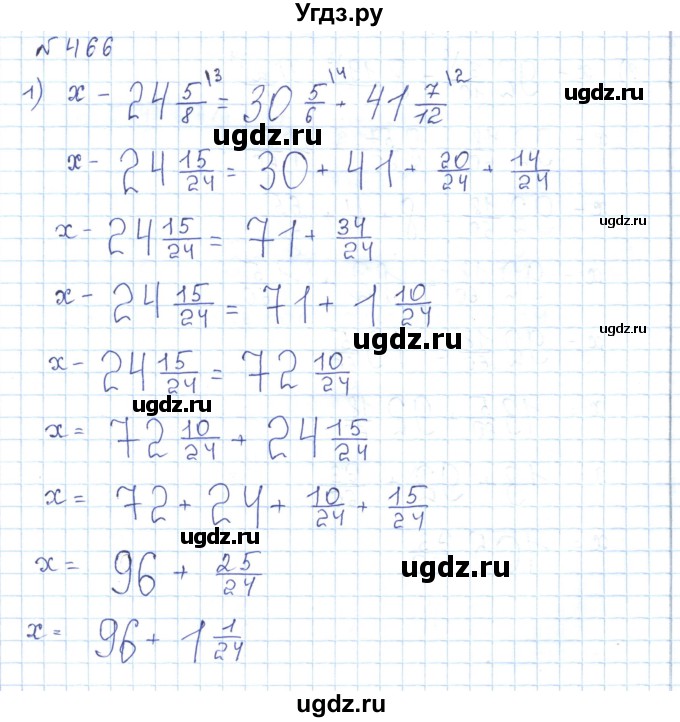 Угдз.ру
№ 466
1) x - 24 5/8 \3 = 30 5/6 \4 + 41 7/12 \2
ugdz.ru
ugdz.ru
x - 24 15/24 = 30 + 41 + 20/24 + 14/24
ugdz.ru
x - 24 15/24 = 71 + 34/24
ugdz.ru
x - 24 15/24 = 71 + 1 10/24
ugdz.ru
ugdz.ru
x - 24 15/24 = 72 10/24
ugdz.ru
x = 72 10/24 + 24 15/24
x = 72 + 24 + 10/24 + 15/24
ugdz.ru
x = 96 + 25/24
ugdz.ru
x = 96 + 1 1/24
ugdz.ru